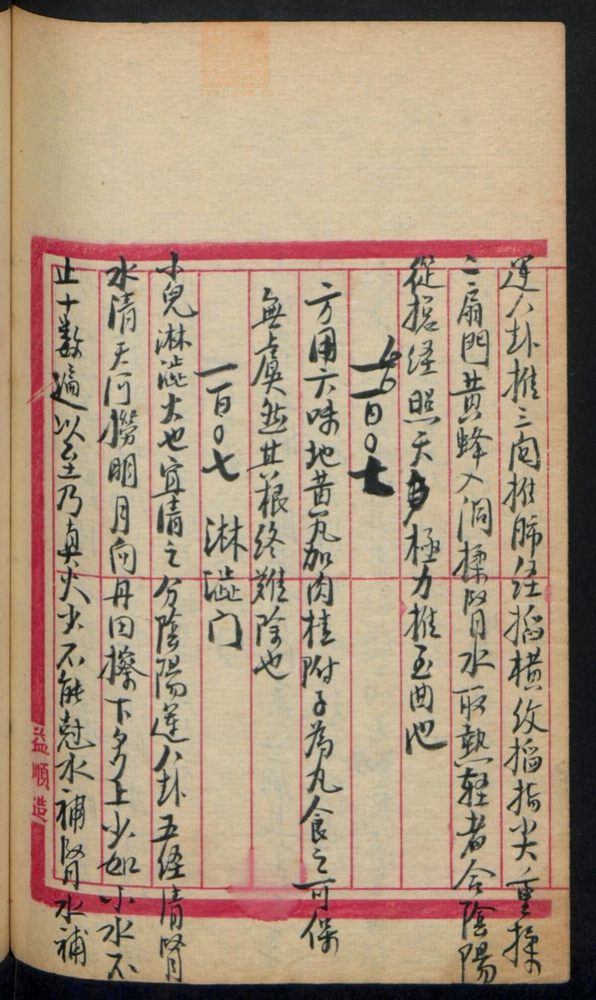 運八卦推三関推肺经掐横纹掐指尖重揉
二扇門黄蜂入洞揉腎水取熱輕者合陰陽
從掐经照天河極力推至曲池
一百〇七
方用六味地黄丸加肉桂附子為丸食之可保
無虞然其根终難除也
一百〇七 淋澁门
小兒淋澁火也宜清之分陰陽運八卦五经清腎
水清天河撈明月向丹田擦下多上少如小水不
止十数遍以至乃真火少不能尅水補腎水補
益順造